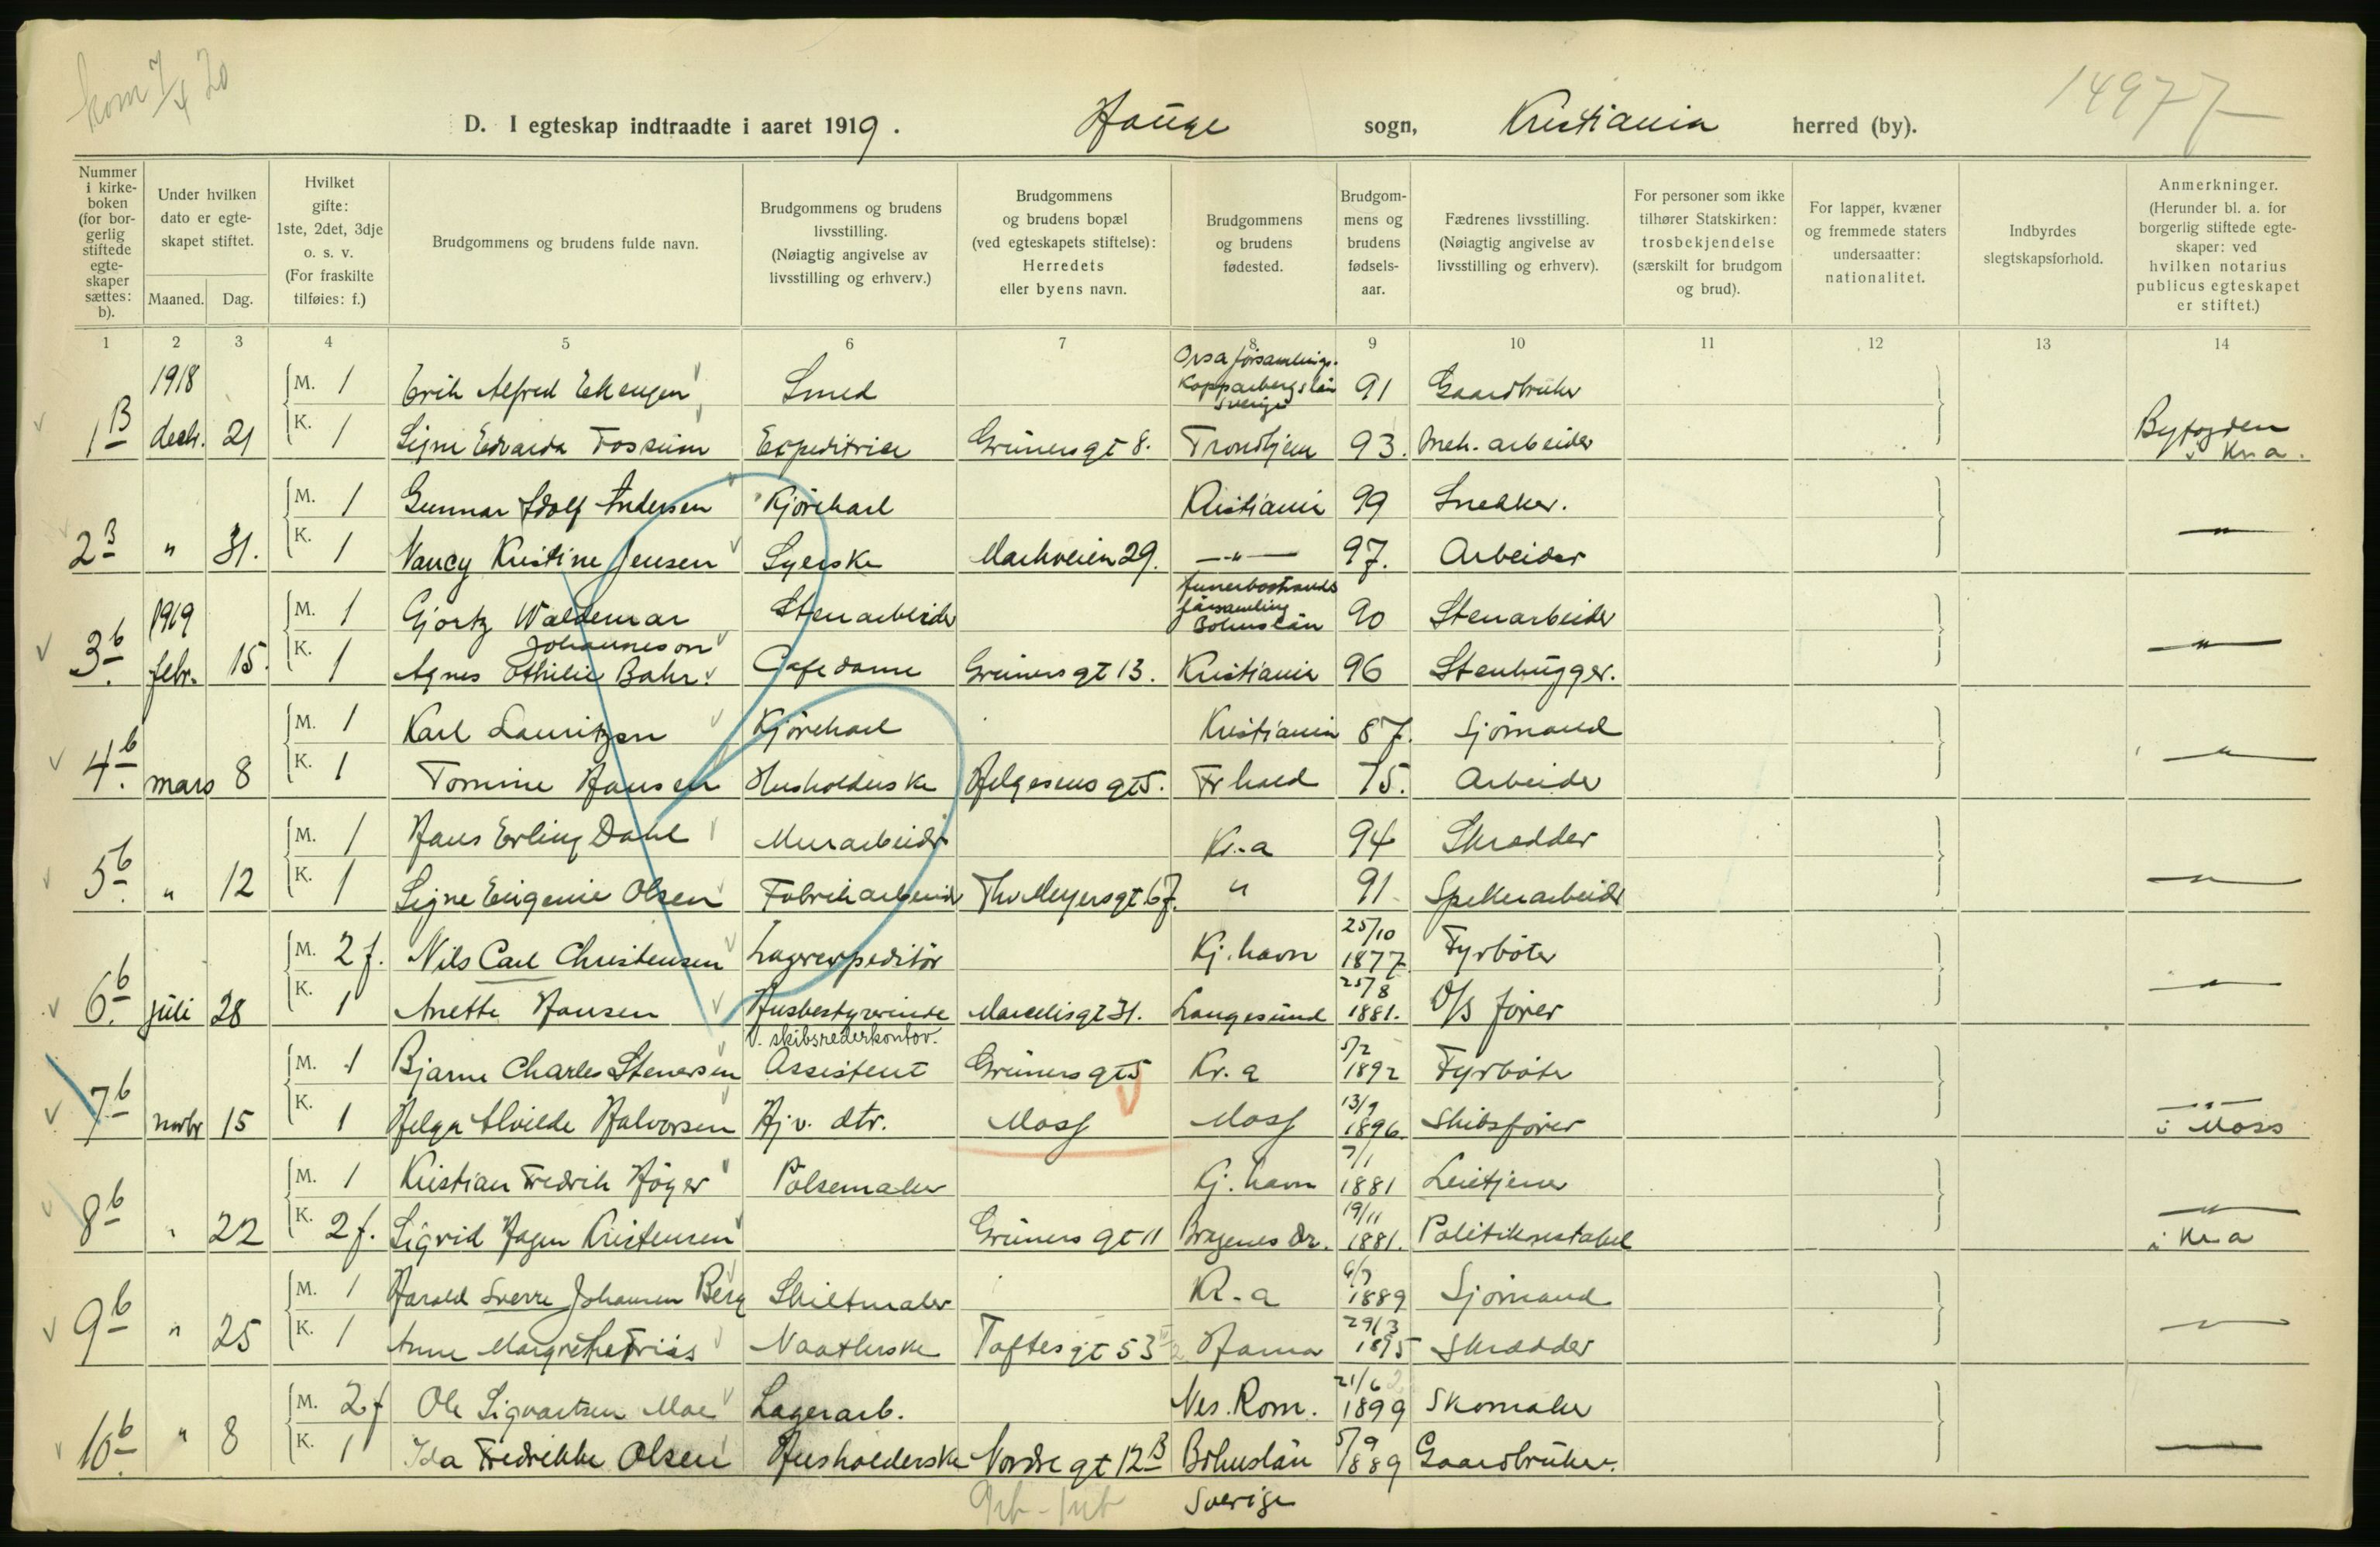 kom 7/4 20
14977
D. I egteskap indtraadte i aaret 1919. Hauge sogn, Kristiania herred (by).
Nummer i kirke-boken (for bor-gerlig stiftede egte-skaper sættes: b).
Under hvilken dato er egte-skapet stiftet.
Maaned. Dag.
Hvilket gifte: 1ste, 2det, 3dje o. s. v. (For fraskilte tilføies: f.)
Brudgommens og brudens fulde navn.
Brudgommens og brudens livsstilling. (Nøiagtig angivelse av livsstilling og erhverv.)
Brudgommens og brudens bopæl (ved egteskapets stiftelse): Herredets eller byens navn.
Brudgommens og brudens fødested.
Brudgom-mens og brudens fødsels-aar.
Fædrenes livsstilling. (Nøiagtig angivelse av livsstilling og erhverv).
For personer som ikke tilhører Statskirken: trosbekjendelse (særskilt for brudgom og brud).
For lapper, kvæner og fremmede staters undersaatter: nationalitet.
Indbyrdes slegtskapsforhold.
Anmerkninger. (Herunder bl. a. for borgerlig stiftede egte-skaper: ved hvilken notarius publicus egteskapet er stiftet.)
1 2 3 4 5 6 7 8 9 10 11 12 13 14
1918 M. 1 Erik Alfred Ekengen Smed Orsa församlings. Kopparbergs län Sverige 91 Gaardbruker
1B decbr. 21 K. 1 Signe Edvarda Fossum Expeditrice Grüners gt 8. Trondhjem 93. Mek. arbeider Byfogden i Kr.a.
M. 1 Gunnar Adolf Andersen Kjørekarl Kristiania 99 Snekker.
2B " 31. K. 1 Nancy Kristine Jensen Syerske Markveien 29. —"— 97. Arbeider —"—
1919 M. 1 Gjortz Waldemar Johanneson Stenarbeider församling Bohuslän 90 Stenarbeider
3b febr. 15. K. 1 Agnes Othilie Bahr. Cafedame Grüners gt 13. Kristiania 96 Stenhugger. —"—
M. 1 Karl Lauritzen Kjørekarl Kristiania 87. Sjömand
4b. mars 8 K. 1 Tomine Hansen Husholderske Helgesens gt 5. Fr hald 75. Arbeider —"—
M. 1 Hans Erling Dahl Murarbeider Kr.a 94 Skrædder
5b. " 12 K. 1 Signe Eugenie Olsen Fabrikarbeid Thv Meyers gt 67. " 91 Spikerarbeider —"—
M. 2 f. Nils Carl Christensen Lagerexpeditör Kj. havn 25/10 1877 Fyrböter
6b. juli 28 K. 1 Anette Hansen Husbestyrerinde Marcelis gt 31. Langesund 25/8 1881. D/S fører —"—
M. 1 Bjarne Charles Stenersen v. skibsrederkontor. Assistent Grüners gt 5 Kr. a 5/2 1892 Fyrböter
7b novbr 15 K. 1 Helga Alvilde Halvorsen Hj v. dtr. Moss Moss 13/9 1896. Skibsfører —"— i Moss
M. 1 Kristian Fredrik Höyer Pölsemaker Kj. havn 7/1 1881 Leietjener
8b " 22 K. 2 f. Sigrid Hagen Kristensen Grüners gt 11 Bragenes Dr. 19/11 1881. Politikonstabel —"— i Kr.a
M. 1 Harald Sverre Johansen Berg Skiltmaler Kr. a 6/7 1889 Sjömand
9b " 25 K. 1 Anne Margrethe Friis Naatlerske Toftes gt 53 Hamar 29/3 1895 Skrædder —"—
M. 2 f Ole Sigvartsen Moe Lagerarb. Nes. Rom. 21/6 1899 Skomaker
10b. " 8 K. 1 Ida Fredrikke Olsen Husholderske Nordre gt 12B Bohuslän 5/9 1889 Gaardbruker.
Sverige